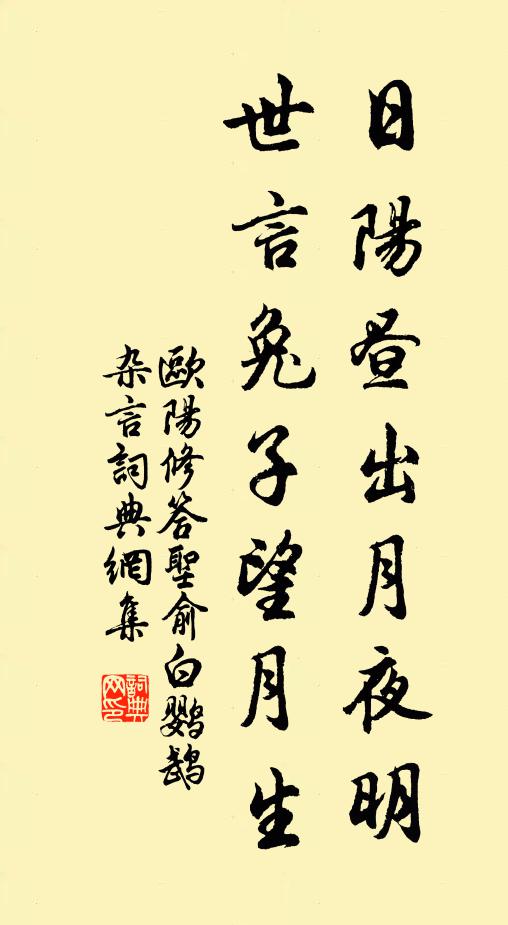 日陽昼出月夜明
世言兔子望月生
歐陽修答聖俞白鹦鹉
杂言詞典網集
詞典网印